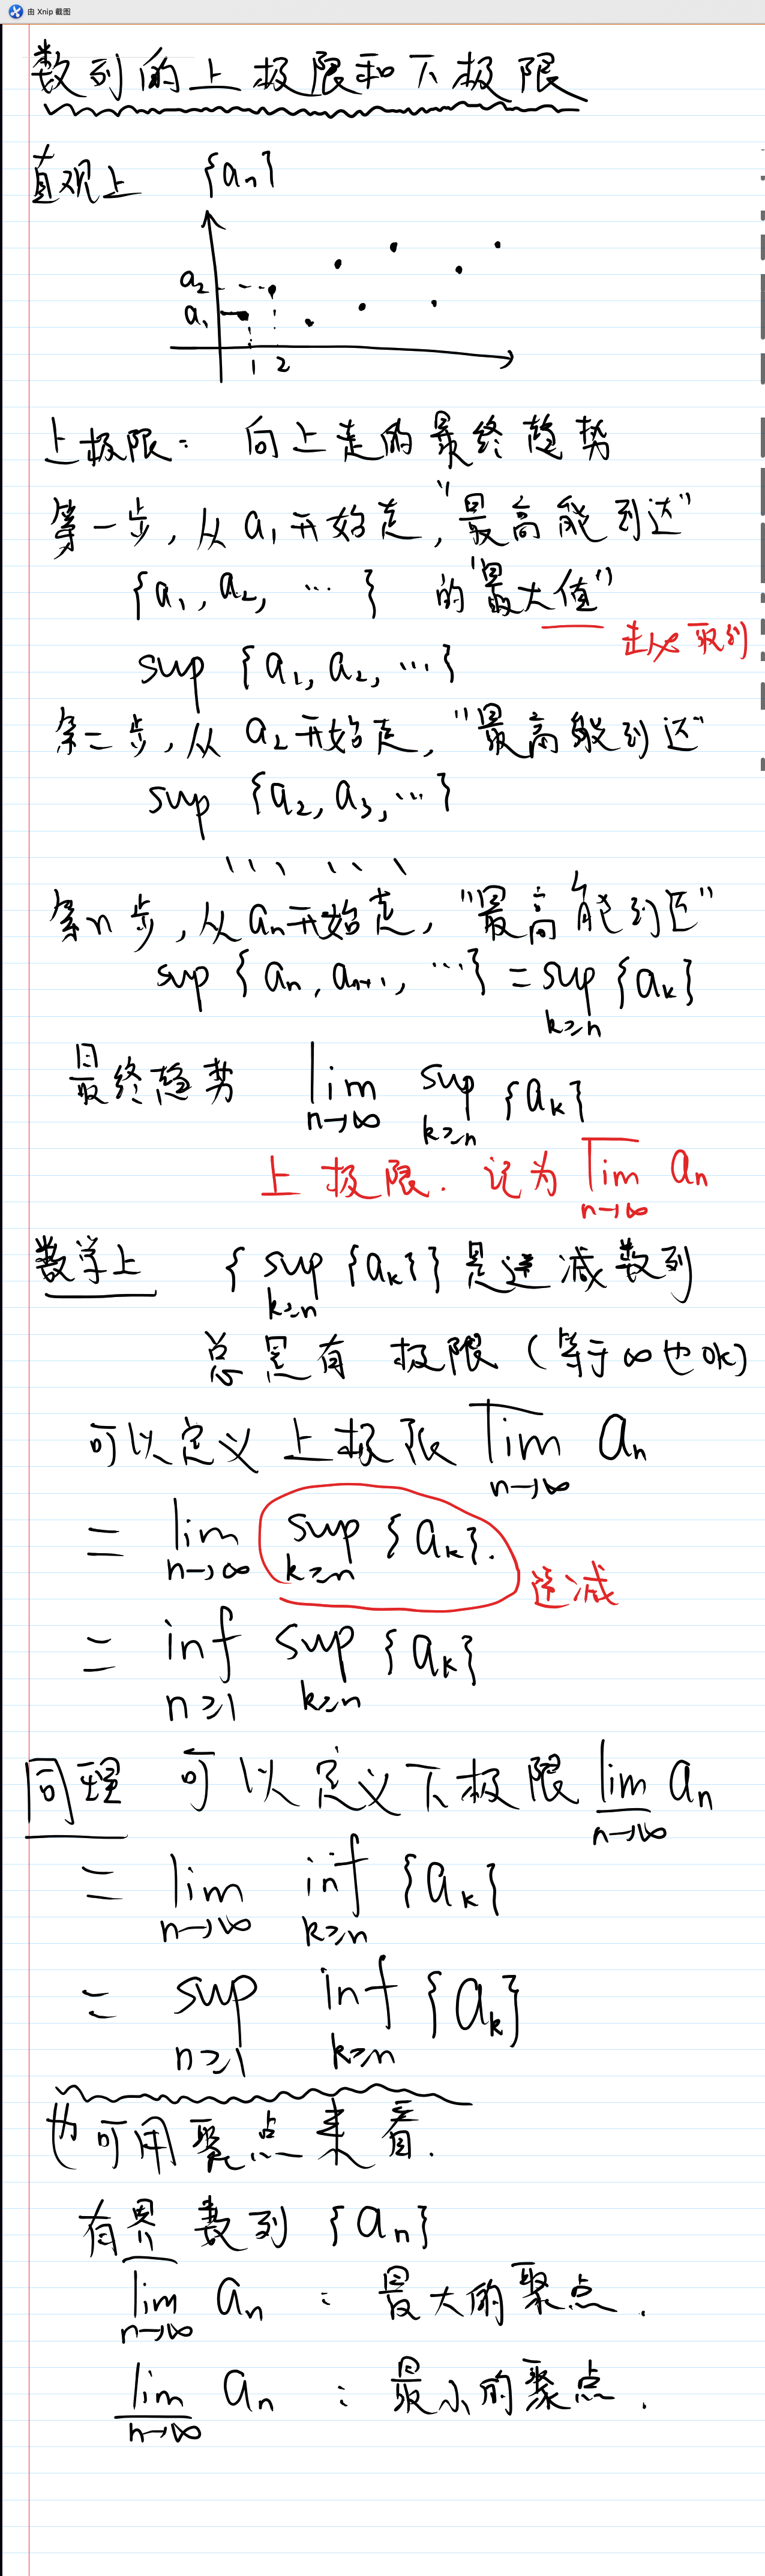 由 Xnip 截图
数列的上极限和下极限
直观上 {aₙ}
a₂
a₁
1 2
上极限: 向上走的最终趋势
第一步, 从 a₁ 开始走, "最高能到达"
{a₁, a₂, ⋯} 的"最大值"
未必取到
sup {a₁, a₂, ⋯}
第二步, 从 a₂ 开始走, "最高能到达"
sup {a₂, a₃, ⋯}
⋯ ⋯
第n步, 从 aₙ 开始走, "最高能到达"
sup {aₙ, aₙ₊₁, ⋯} = sup {aₖ}
k≥n
最终趋势 lim sup {aₖ}
n→∞ k≥n
上极限. 记为 l̅i̅m̅ aₙ
n→∞
数学上 { sup {aₖ} } 是递减数列
k≥n
总是有极限 (等于∞也ok)
可以定义上极限 l̅i̅m̅ aₙ
n→∞
= lim sup {aₖ}.
n→∞ k≥n
递减
= inf sup {aₖ}
n≥1 k≥n
同理 可以定义下极限 l̲i̲m̲ aₙ
n→∞
= lim inf {aₖ}
n→∞ k≥n
= sup inf {aₖ}
n≥1 k≥n
也可用聚点来看.
有界数列 {aₙ}
l̅i̅m̅ aₙ : 最大的聚点.
n→∞
l̲i̲m̲ aₙ : 最小的聚点.
n→∞